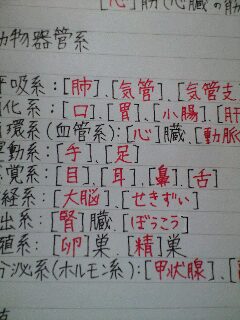 [心]筋(心臓の筋
動物器管系
呼吸系:[肺]、[気管]、[気管支
化系:[口]、[胃]、[小腸]、[肝
環系(血管系):[心]臓、[動脈
運動系:[手]、[足]
感覚系:[目]、[耳]、[鼻]、[舌]
経系:[大脳]、[せきずい]
出系:[腎]臓、[ぼうこう]
殖系:[卵]巣、[精]巣
分泌系(ホルモン系):[甲状腺]、[